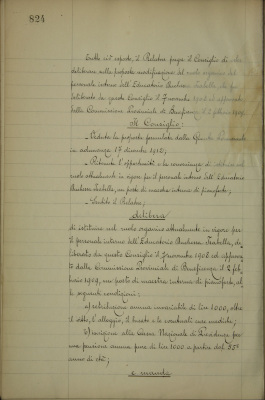 824
Tutto ciò esposto, il Relatore prega il Consiglio di
deliberare sulla proposta modificazione del ruolo organico del
personale interno dell'Educatorio
deliberato da questo Consiglio il 7 novembre 1908 ed approvato
dalla Commissione Provinciale di Beneficenza il 2 febbraio 1909.
Il Consiglio:
- Veduta la proposta formulata dalla
in adunanza 17 dicembre 1912;
- Ritenuta l'opportunità e la convenienza di
ruolo attualmente in vigore per il personale interno dell'Educatorio
un posto di maestra interna di pianoforte;
- Sentito il Relatore;
delibera
di istituire nel ruolo organico attualmente in vigore per
il personale interno dell'Educatorio de-
liberato da questo Consiglio il 7 novembre 1908 ed approva-
to dalla Commissione Provinciale di Beneficenza il 2 feb-
braio 1909, un posto di maestra interna di pianoforte, al-
le seguenti condizioni:
a) retribuzione annua invariabile di lire 1000, oltre
il vitto, l'alloggio, il bucato e le consuete cure mediche;
b) iscrizione alla Cassa Nazionale di Previdenza per
una pensione annua pura di lire 1000 a partire dal 55°
anno di età;
e manda